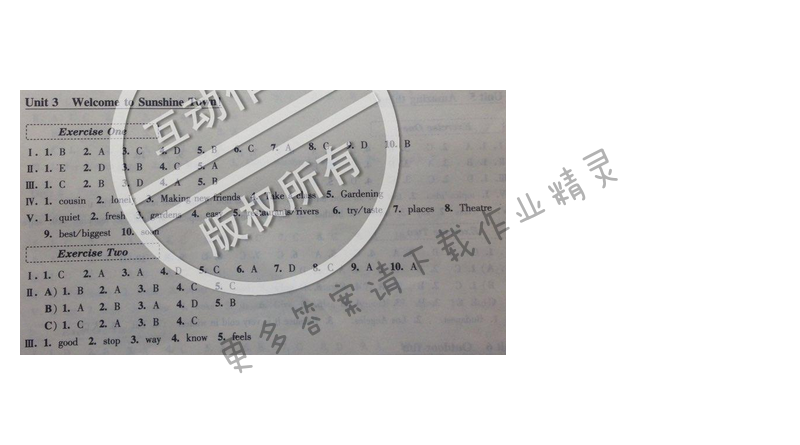 Unit 3 Welcome to Sunshine Town
Exercise One
Ⅰ. 1. B 2. A 3. C 4. D 5. B 6. C 7. A 8. C 9. D 10. B
Ⅱ. 1. E 2. D 3. B 4. C 5. A
Ⅲ. 1. C 2. B 3. D 4. A 5. B
Ⅳ. 1. cousin 2. lonely 3. Making new friends 4. class 5. Gardening
Ⅴ. 1. quiet 2. fresh 3. gardens 4. easy 5. restaurants/rivers 6. try/taste 7. places 8. Theatre
9. best/biggest 10. soon
Exercise Two
Ⅰ. 1. C 2. A 3. A 4. D 5. C 6. A 7. D 8. C 9. A 10. A
Ⅱ. A) 1. B 2. A 3. B 4. C 5. C
B) 1. A 2. B 3. A 4. D 5. B
C) 1. C 2. A 3. B 4. C
Ⅲ. 1. good 2. stop 3. way 4. know 5. feels
互动作
版权所有
更多答案请下载作业精灵